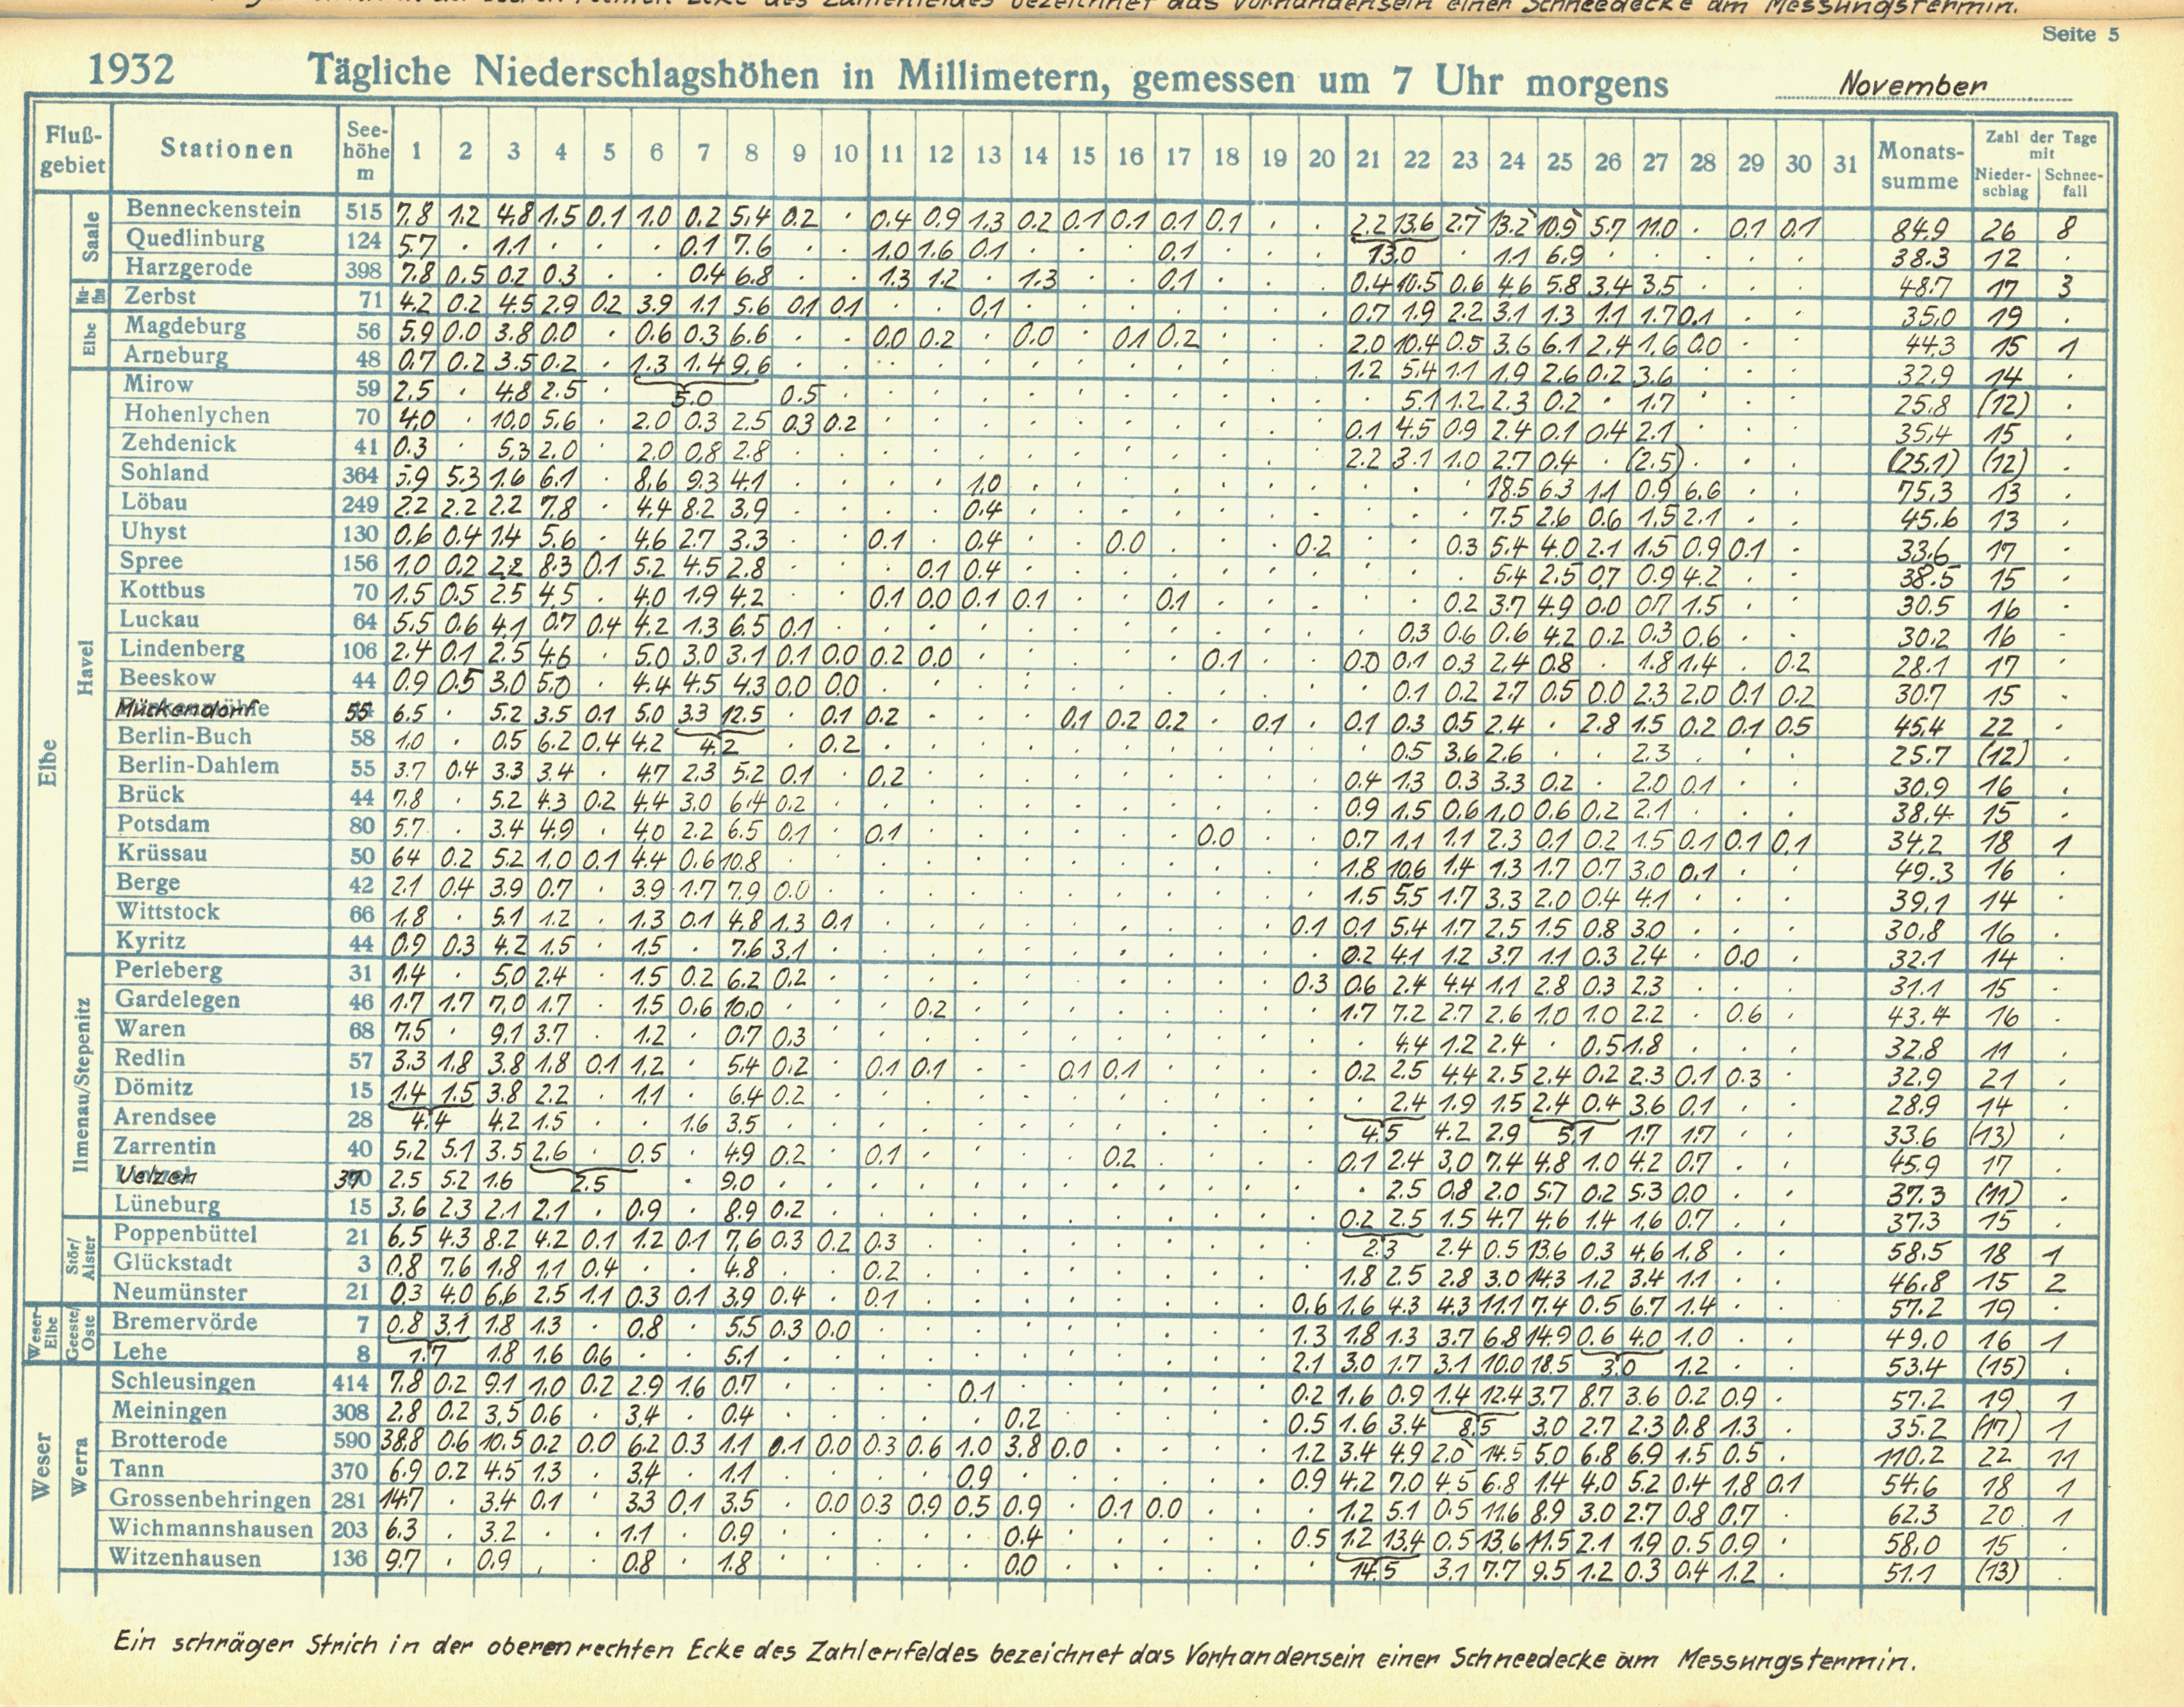 bezeichnet das Vorhandensein einer Schneedecke am Messungstermin.
Seite 5
1932 Tägliche Niederschlagshöhen in Millimetern, gemessen um 7 Uhr morgens November
Fluß-gebiet Stationen See-höhe m 1 2 3 4 5 6 7 8 9 10 11 12 13 14 15 16 17 18 19 20 21 22 23 24 25 26 27 28 29 30 31 Monats-summe Zahl der Tage mit Nieder-schlag Schnee-fall
Elbe
Saale
Benneckenstein 515 7.8 1.2 4.8 1.5 0.1 1.0 0.2 5.4 0.2 . 0.4 0.9 1.3 0.2 0.1 0.1 0.1 0.1 . . 2.2 13.6 2.7 13.2 10.9 5.7 11.0 . 0.1 0.1 84.9 26 8
Quedlinburg 124 5.7 . 1.1 . . . 0.1 7.6 . . 1.0 1.6 0.1 . . . 0.1 . . . 13.0 . 1.1 6.9 . . . . . 38.3 12 .
Harzgerode 398 7.8 0.5 0.2 0.3 . . 0.4 6.8 . . 1.3 1.2 . 1.3 . . 0.1 . . . 0.4 10.5 0.6 4.6 5.8 3.4 3.5 . . . 48.7 17 3
Nu-the
Zerbst 71 4.2 0.2 4.5 2.9 0.2 3.9 1.1 5.6 0.1 0.1 . . 0.1 . . . . . . . 0.7 1.9 2.2 3.1 1.3 1.1 1.7 0.1 . . 35.0 19 .
Elbe
Magdeburg 56 5.9 0.0 3.8 0.0 . 0.6 0.3 6.6 . . 0.0 0.2 . 0.0 . 0.1 0.2 . . . 2.0 10.4 0.5 3.6 6.1 2.4 1.6 0.0 . . 44.3 15 1
Arneburg 48 0.7 0.2 3.5 0.2 . 1.3 1.4 9.6 . . . . . . . . . . . . 1.2 5.4 1.1 1.9 2.6 0.2 3.6 . . . 32.9 14 .
Havel
Mirow 59 2.5 . 4.8 2.5 . 5.0 0.5 . . . . . . . . . . . . . 5.1 1.2 2.3 0.2 . 1.7 . . . 25.8 (12) .
Hohenlychen 70 4.0 . 10.0 5.6 . 2.0 0.3 2.5 0.3 0.2 . . . . . . . . . . 0.1 4.5 0.9 2.4 0.1 0.4 2.1 . . . 35.4 15 .
Zehdenick 41 0.3 . 5.3 2.0 . 2.0 0.8 2.8 . . . . . . . . . . . . 2.2 3.1 1.0 2.7 0.4 . (2.5) . . . (25.1) (12) .
Sohland 364 5.9 5.3 1.6 6.1 . 8.6 9.3 4.1 . . . . 1.0 . . . . . . . . . . 18.5 6.3 1.1 0.9 6.6 . . 75.3 13 .
Löbau 249 2.2 2.2 2.2 7.8 . 4.4 8.2 3.9 . . . . 0.4 . . . . . . . . . . 7.5 2.6 0.6 1.5 2.1 . . 45.6 13 .
Uhyst 130 0.6 0.4 1.4 5.6 . 4.6 2.7 3.3 . . 0.1 . 0.4 . . 0.0 . . . 0.2 . . 0.3 5.4 4.0 2.1 1.5 0.9 0.1 . 33.6 17 .
Spree 156 1.0 0.2 2.2 8.3 0.1 5.2 4.5 2.8 . . . 0.1 0.4 . . . . . . . . . . 5.4 2.5 0.7 0.9 4.2 . . 38.5 15 .
Kottbus 70 1.5 0.5 2.5 4.5 . 4.0 1.9 4.2 . . 0.1 0.0 0.1 0.1 . . 0.1 . . . . . 0.2 3.7 4.9 0.0 0.7 1.5 . . 30.5 16 .
Luckau 64 5.5 0.6 4.1 0.7 0.4 4.2 1.3 6.5 0.1 . . . . . . . . . . . . 0.3 0.6 0.6 4.2 0.2 0.3 0.6 . . 30.2 16 .
Lindenberg 106 2.4 0.1 2.5 4.6 . 5.0 3.0 3.1 0.1 0.0 0.2 0.0 . . . . . 0.1 . . 0.0 0.1 0.3 2.4 0.8 . 1.8 1.4 . 0.2 28.1 17 .
Beeskow 44 0.9 0.5 3.0 5.0 . 4.4 4.5 4.3 0.0 0.0 . . . . . . . . . . . 0.1 0.2 2.7 0.5 0.0 2.3 2.0 0.1 0.2 30.7 15 .
Mückendorf 55 6.5 . 5.2 3.5 0.1 5.0 3.3 12.5 . 0.1 0.2 . . . 0.1 0.2 0.2 . 0.1 . 0.1 0.3 0.5 2.4 . 2.8 1.5 0.2 0.1 0.5 45.4 22 .
Berlin-Buch 58 1.0 . 0.5 6.2 0.4 4.2 4.2 . 0.2 . . . . . . . . . . . 0.5 3.6 2.6 . . 2.3 . . . 25.7 (12) .
Berlin-Dahlem 55 3.7 0.4 3.3 3.4 . 4.7 2.3 5.2 0.1 . 0.2 . . . . . . . . . 0.4 1.3 0.3 3.3 0.2 . 2.0 0.1 . . 30.9 16 .
Brück 44 7.8 . 5.2 4.3 0.2 4.4 3.0 6.4 0.2 . . . . . . . . . . . 0.9 1.5 0.6 1.0 0.6 0.2 2.1 . . . 38.4 15 .
Potsdam 80 5.7 . 3.4 4.9 . 4.0 2.2 6.5 0.1 . 0.1 . . . . . . 0.0 . . 0.7 1.1 1.1 2.3 0.1 0.2 1.5 0.1 0.1 0.1 34.2 18 1
Krüssau 50 6.4 0.2 5.2 1.0 0.1 4.4 0.6 10.8 . . . . . . . . . . . . 1.8 10.6 1.4 1.3 1.7 0.7 3.0 0.1 . . 49.3 16 .
Berge 42 2.1 0.4 3.9 0.7 . 3.9 1.7 7.9 0.0 . . . . . . . . . . . 1.5 5.5 1.7 3.3 2.0 0.4 4.1 . . . 39.1 14 .
Wittstock 66 1.8 . 5.1 1.2 . 1.3 0.1 4.8 1.3 0.1 . . . . . . . . . 0.1 0.1 5.4 1.7 2.5 1.5 0.8 3.0 . . . 30.8 16 .
Kyritz 44 0.9 0.3 4.2 1.5 . 1.5 . 7.6 3.1 . . . . . . . . . . . 0.2 4.1 1.2 3.7 1.1 0.3 2.4 . 0.0 . 32.1 14 .
Ilmenau/Stepenitz
Perleberg 31 1.4 . 5.0 2.4 . 1.5 0.2 6.2 0.2 . . . . . . . . . . 0.3 0.6 2.4 4.4 1.1 2.8 0.3 2.3 . . . 31.1 15 .
Gardelegen 46 1.7 1.7 7.0 1.7 . 1.5 0.6 10.0 . . . 0.2 . . . . . . . . 1.7 7.2 2.7 2.6 1.0 1.0 2.2 . 0.6 . 43.4 16 .
Waren 68 7.5 . 9.1 3.7 . 1.2 . 0.7 0.3 . . . . . . . . . . . . 4.4 1.2 2.4 . 0.5 1.8 . . . 32.8 11 .
Redlin 57 3.3 1.8 3.8 1.8 0.1 1.2 . 5.4 0.2 . 0.1 0.1 . . 0.1 0.1 . . . . 0.2 2.5 4.4 2.5 2.4 0.2 2.3 0.1 0.3 . 32.9 21 .
Dömitz 15 1.4 1.5 3.8 2.2 . 1.1 . 6.4 0.2 . . . . . . . . . . . . 2.4 1.9 1.5 2.4 0.4 3.6 0.1 . . 28.9 14 .
Arendsee 28 4.4 4.2 1.5 . . 1.6 3.5 . . . . . . . . . . . . 4.5 4.2 2.9 5.1 1.7 1.7 . . 33.6 (13) .
Zarrentin 40 5.2 5.1 3.5 2.6 . 0.5 . 4.9 0.2 . 0.1 . . . . 0.2 . . . . 0.1 2.4 3.0 7.4 4.8 1.0 4.2 0.7 . . 45.9 17 .
Uelzen 37 2.5 5.2 1.6 2.5 . 9.0 . . . . . . . . . . . . . 2.5 0.8 2.0 5.7 0.2 5.3 0.0 . . 37.3 (11) .
Lüneburg 15 3.6 2.3 2.1 2.1 . 0.9 . 8.9 0.2 . . . . . . . . . . . 0.2 2.5 1.5 4.7 4.6 1.4 1.6 0.7 . . 37.3 15 .
Stör/Alster
Poppenbüttel 21 6.5 4.3 8.2 4.2 0.1 1.2 0.1 7.6 0.3 0.2 0.3 . . . . . . . . . 2.3 2.4 0.5 13.6 0.3 4.6 1.8 . . 58.5 18 1
Glückstadt 3 0.8 7.6 1.8 1.1 0.4 . . 4.8 . . 0.2 . . . . . . . . . 1.8 2.5 2.8 3.0 14.3 1.2 3.4 1.1 . . 46.8 15 2
Neumünster 21 0.3 4.0 6.6 2.5 1.1 0.3 0.1 3.9 0.4 . 0.1 . . . . . . . . 0.6 1.6 4.3 4.3 11.1 7.4 0.5 6.7 1.4 . . 57.2 19 .
Weser-Elbe
Geeste/Oste
Bremervörde 7 0.8 3.1 1.8 1.3 . 0.8 . 5.5 0.3 0.0 . . . . . . . . . 1.3 1.8 1.3 3.7 6.8 14.9 0.6 4.0 1.0 . . 49.0 16 1
Lehe 8 1.7 1.8 1.6 0.6 . . 5.1 . . . . . . . . . . . 2.1 3.0 1.7 3.1 10.0 18.5 3.0 1.2 . . 53.4 (15) .
Weser
Werra
Schleusingen 414 7.8 0.2 9.1 1.0 0.2 2.9 1.6 0.7 . . . . 0.1 . . . . . . 0.2 1.6 0.9 1.4 12.4 3.7 8.7 3.6 0.2 0.9 . 57.2 19 1
Meiningen 308 2.8 0.2 3.5 0.6 . 3.4 . 0.4 . . . . . 0.2 . . . . . 0.5 1.6 3.4 8.5 3.0 2.7 2.3 0.8 1.3 . 35.2 (17) 1
Brotterode 590 38.8 0.6 10.5 0.2 0.0 6.2 0.3 1.1 0.1 0.0 0.3 0.6 1.0 3.8 0.0 . . . . 1.2 3.4 4.9 2.0 14.5 5.0 6.8 6.9 1.5 0.5 . 110.2 22 11
Tann 370 6.9 0.2 4.5 1.3 . 3.4 . 1.1 . . . . 0.9 . . . . . . 0.9 4.2 7.0 4.5 6.8 1.4 4.0 5.2 0.4 1.8 0.1 54.6 18 1
Grossenbehringen 281 14.7 . 3.4 0.1 . 3.3 0.1 3.5 . 0.0 0.3 0.9 0.5 0.9 . 0.1 0.0 . . . 1.2 5.1 0.5 11.6 8.9 3.0 2.7 0.8 0.7 . 62.3 20 1
Wichmannshausen 203 6.3 . 3.2 . . 1.1 . 0.9 . . . . . 0.4 . . . . . 0.5 1.2 13.4 0.5 13.6 11.5 2.1 1.9 0.5 0.9 . 58.0 15 .
Witzenhausen 136 9.7 . 0.9 . . 0.8 . 1.8 . . . . . 0.0 . . . . . . 14.5 3.1 7.7 9.5 1.2 0.3 0.4 1.2 . 51.1 (13) .
Ein schräger Strich in der oberen rechten Ecke des Zahlenfeldes bezeichnet das Vorhandensein einer Schneedecke am Messungstermin.